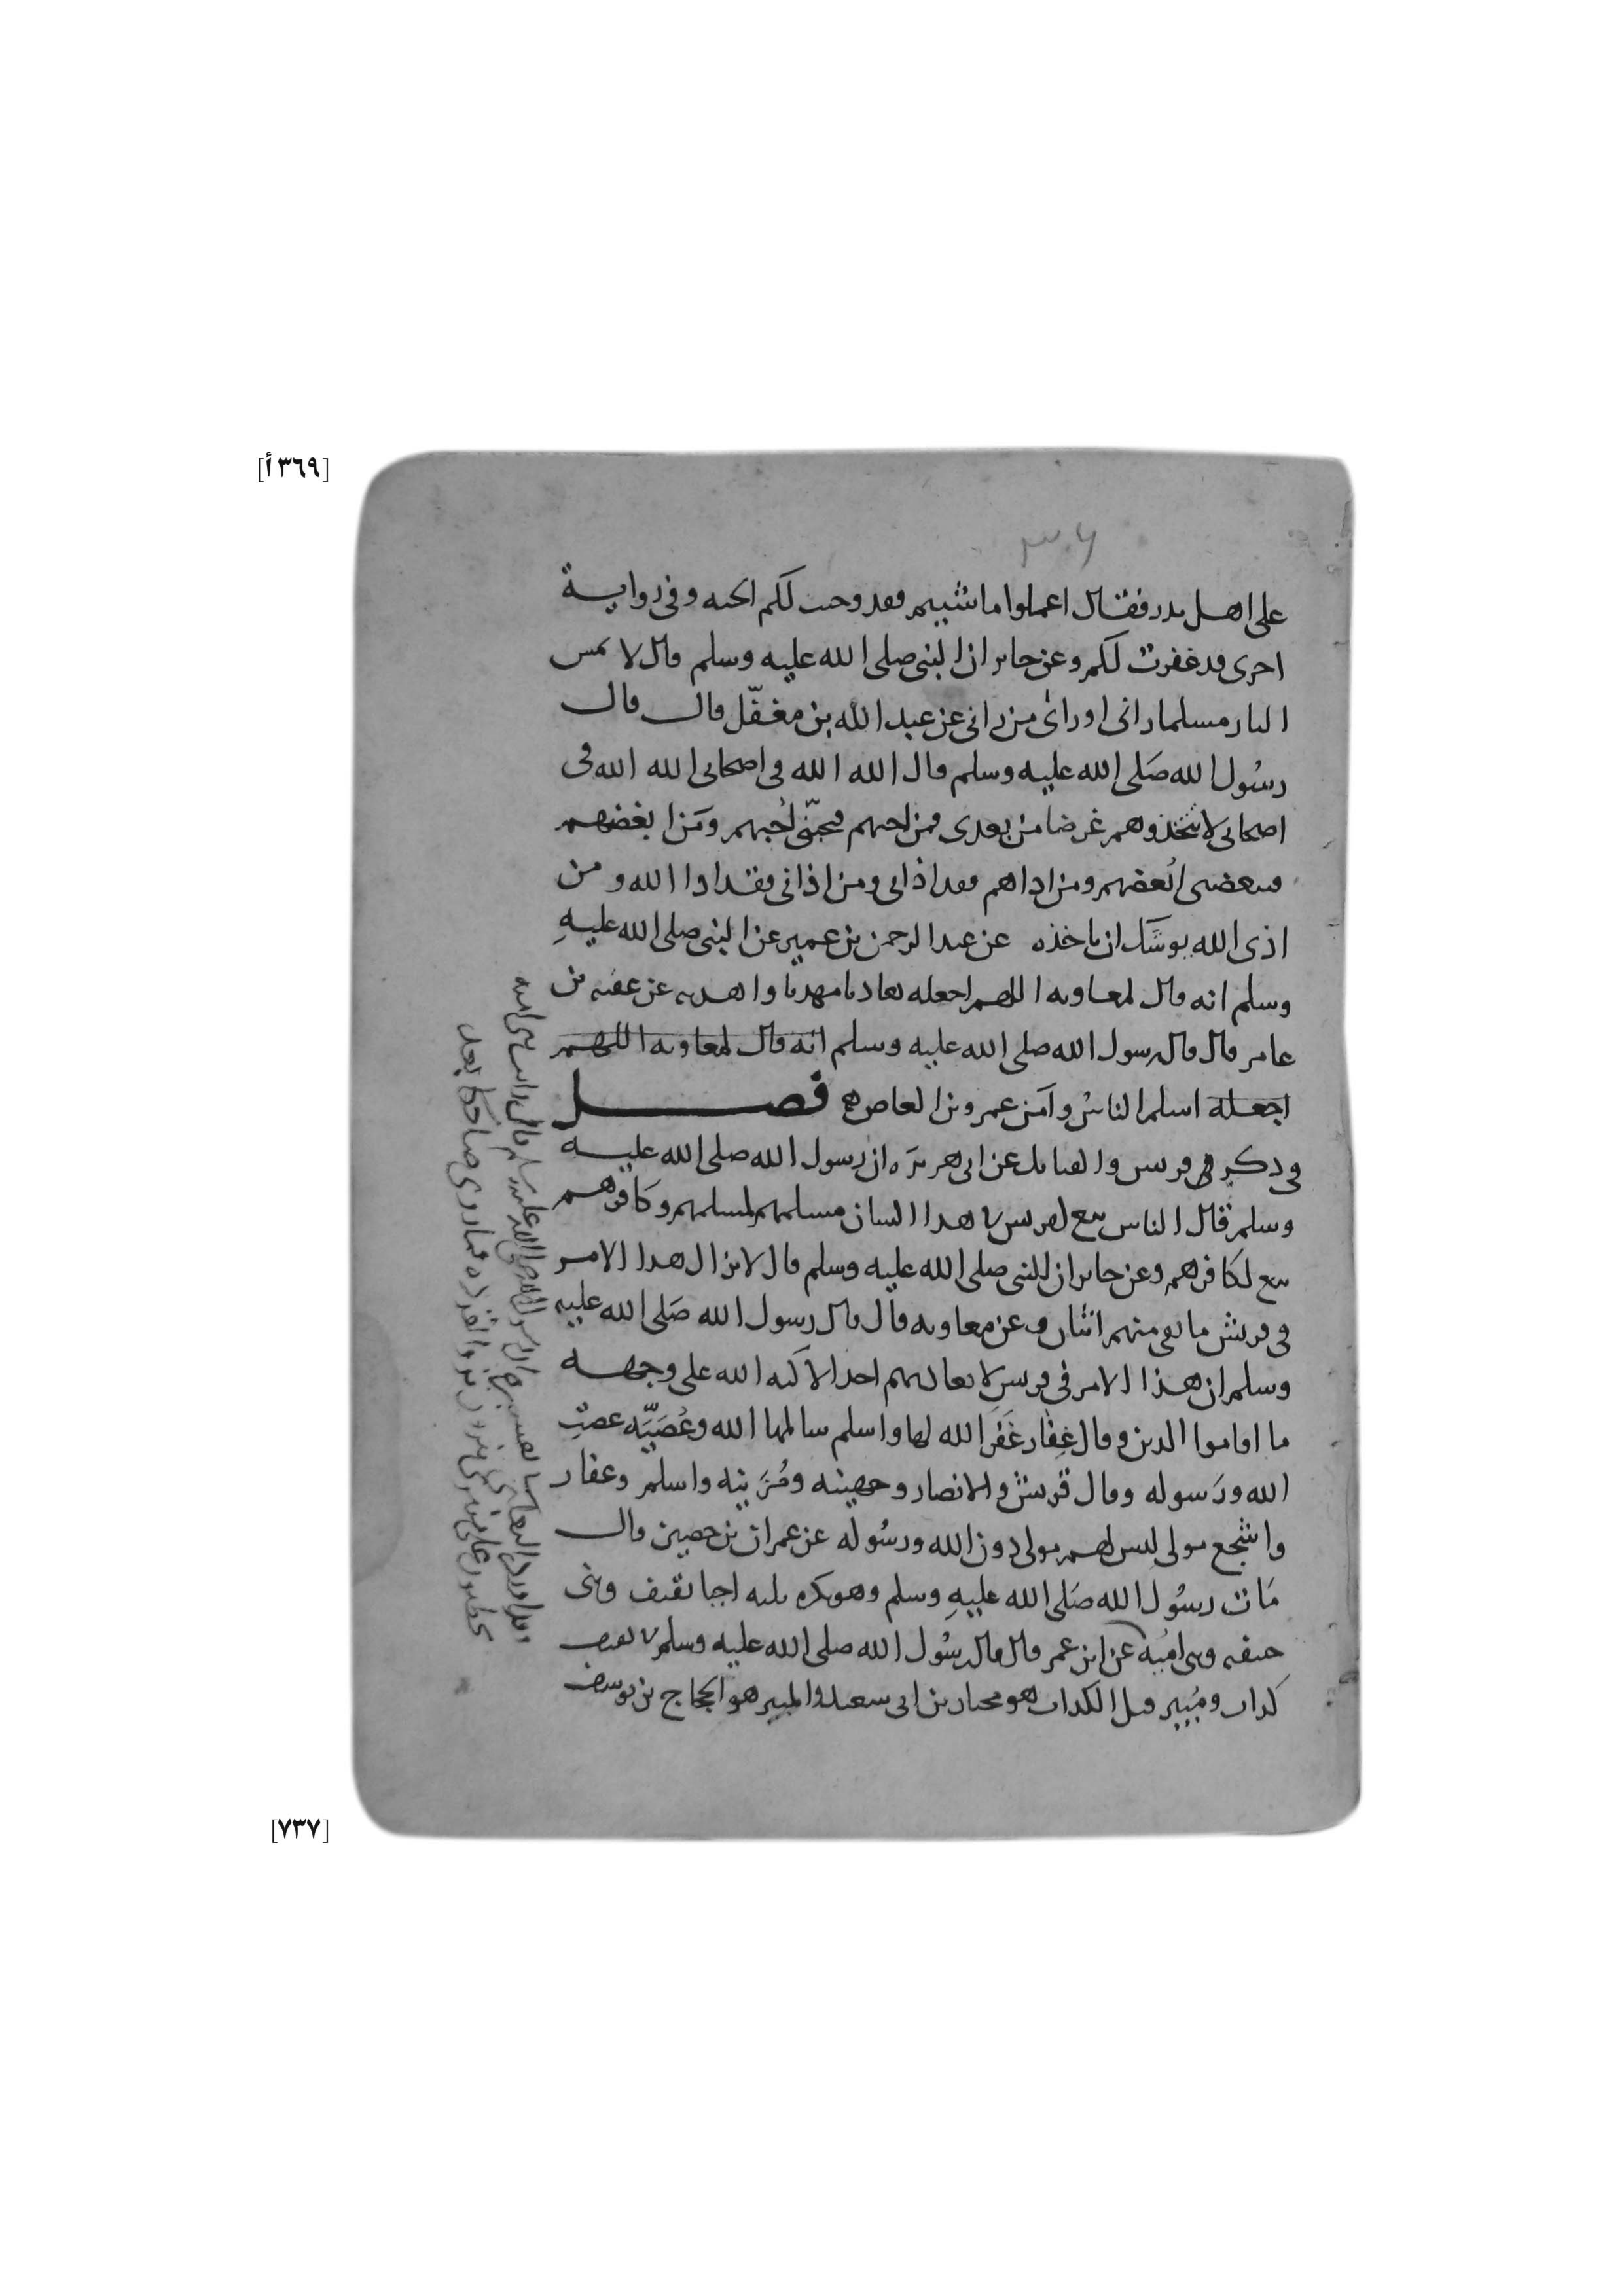 [٣٦٩أ]
على اهل بدر فقال اعملوا ما شيتم فقد وجبت لكم الجنه وفي رواية
اخرى قد غفرت لكم وعن جابر ان النبي صلى الله عليه وسلم قال لا تمس
النار مسلما راني او راى من راني عن عبد الله بن مغفّل قال قال
رسُول الله صَلى الله عليه وسلم قال الله الله في اصحابي الله الله في
اصحابي لا تتخذوهم غرضا من بعدي فمن احبهم فبحبّي احُبهم ومَن ابغضهم
فببغضي ابُغضهم ومن اذاهم فقد اذاني ومن اذاني فقد اذا الله ومن
اذى الله يوشَك ان ياخذه عن عبد الرحمن بن عمير عن النبي صلى الله عليهِ
وسلم انه قال لمعاويه اللهم اجعله هاديا مهديا واهد به عن عقبه بن
عامر قال قال رسول الله صلى الله عليه وسلم انه قال لمعاويه اللهم
اجعله اسلم الناسُ وآمن عمرو بن العاص فصل
في ذكر قريش والقبايل عن ابي هريرَه ان رسول الله صلى الله عليه
وسلم قال الناس تبع لقريش في هذا الشان مسلمهم لمسلمهم وكافرهم
تبع لكافرهم وعن جابر ان النبي صلى الله عليه وسلم قال لا يزال هذا الامر
في قريش ما بقي منهم اثنان وعن معاويه قال قال رسول الله صَلى الله عليه
وسلم ان هذا الامر في قريش لا يعاديهم احد الا كبه الله على وجهه
ما اقاموا الدين وقال غِفار غَفَر الله لها واسلم سالمها الله وعُصَيَّه عصتِ
الله ورَسوله وقال قريش والانصار وجهينه ومُزَينه واسلم وغفار
واشجع موالي ليس لهم مولى دون الله ورسُوله عن عمران بن حصين قال
مَات رسُول الله صَلى الله عليهِ وسلم وهو يكره ثلثه احيا ثقيف وبني
حنيفه وبني اميُه عن ابن عمر قال قال رسُول الله صلى الله عليه وسلم في ثقيف
كذاب ومُبير قيل الكذاب هو مختار بن ابي سعيد والمبير هو الحجاج بن يوسف
[٧٣٧]